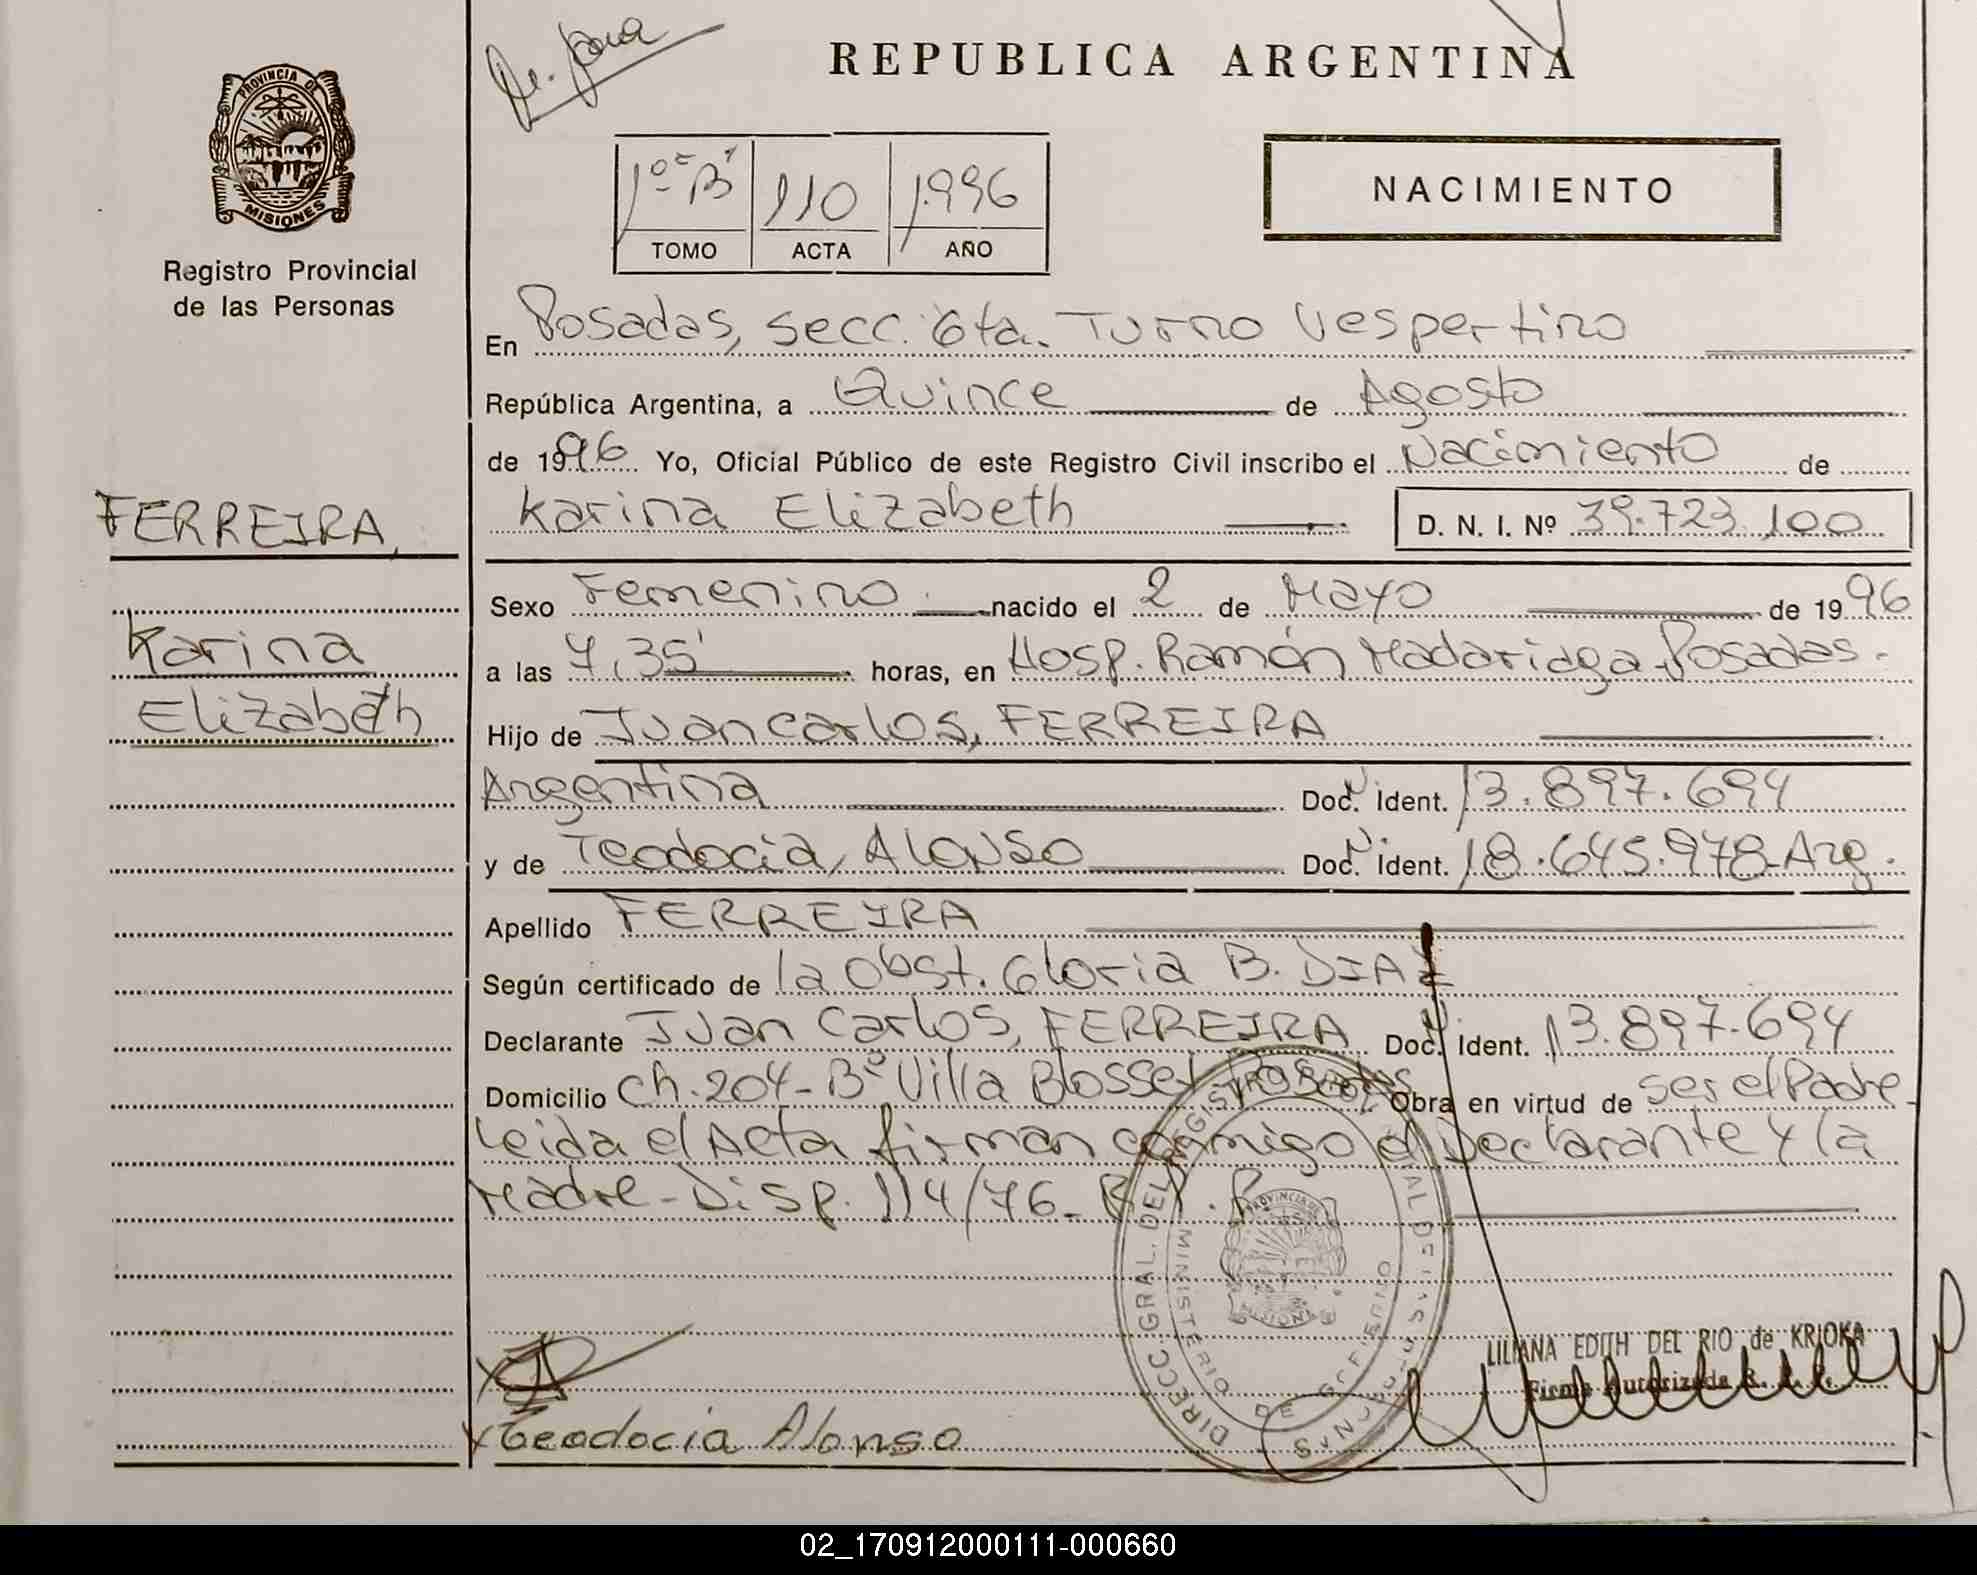 REPUBLICA ARGENTINA
PROVINCIA DE
MISIONES
Registro Provincial
de las Personas
1º "B" 110 1996
TOMO ACTA AÑO
NACIMIENTO
En Posadas, Secc. 6ta. Turno Vespertino
República Argentina, a Quince de Agosto
de 1996 Yo, Oficial Público de este Registro Civil inscribo el Nacimiento de
Karina Elizabeth D. N. I. Nº 39.723.100
FERREIRA,
Karina
Elizabeth
Sexo Femenino nacido el 2 de Mayo de 1996
a las 7,35' horas, en Hosp. Ramón Madariaga, Posadas.
Hijo de Juan Carlos, FERREIRA
Argentina Doc. Ident. 13.897.694
y de Teodocia, ALONSO Doc. Ident. 18.645.978-Arg.
Apellido FERREIRA
Según certificado de la Obst. Gloria B. DIAZ
Declarante Juan Carlos, FERREIRA Doc. Ident. 13.897.694
Domicilio Ch. 204-Bº Villa Blosset Posadas Obra en virtud de ser el Padre
Leida el Acta firman conmigo el Declarante y la
Madre-Disp. 114/76-
DIRECC. GRAL. DEL REGISTRO
MINISTERIO DE GOBIERNO
PROVINCIA DE
MISIONES
LILIANA EDITH DEL RIO de KRIOKA
Firma Autorizada
x Teodocia Alonso
02_170912000111-000660